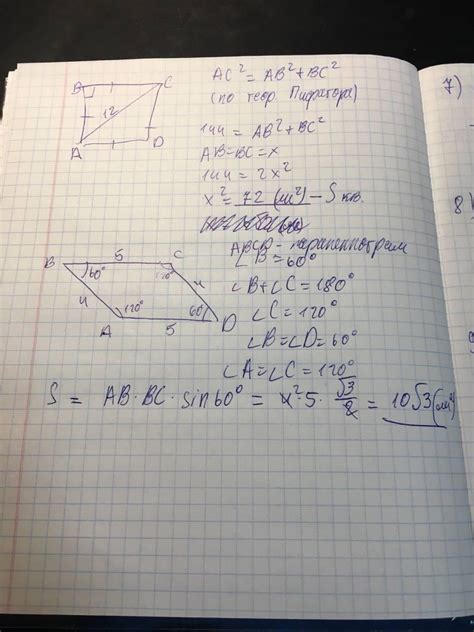 B C
12
A D
AC² = AB² + BC²
(по теор. Пифагора)
144 = AB² + BC²
AB = BC = x
144 = 2x²
x² = 72 (см²) – S кв.
7)
8
ABCD – параллелограм
∠B = 60°
∠B + ∠C = 180°
∠C = 120°
∠B = ∠D = 60°
∠A = ∠C = 120°
B 5 C
60° 120°
4 4
120° 60°
A 5 D
S = AB · BC · sin60° = 4² · 5 · √3/2 = 10√3 (см²)